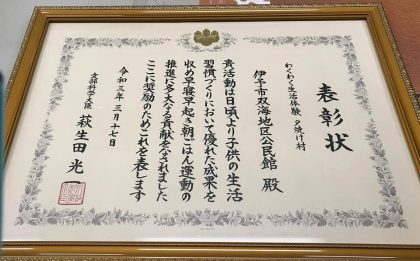 表彰状
わくわく生活体験夕焼け村
伊予市双海地区公民館 殿
貴活動は日頃より子供の生活
習慣づくりにおいて優れた成果を
収め早寝早起き朝ごはん運動の
推進に多大なる貢献をされました
ここに奨励のためこれを表します
令和三年三月十七日
文部科学大臣 萩生田光一